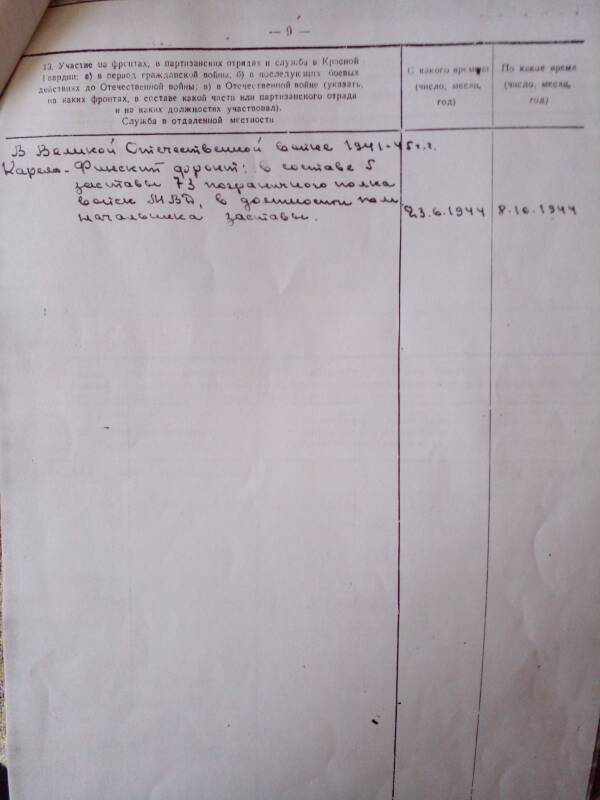 — 9 —
13. Участие на фронтах, в партизанских отрядах и служба в Красной
Гвардии: а) в период гражданской войны; б) в последующих боевых
действиях до Отечественной войны; в) в Отечественной войне (указать,
на каких фронтах, в составе какой части или партизанского отряда
и на каких должностях участвовал).
Служба в отдаленной местности
С какого времени
(число, месяц,
год)
По какое время
(число, месяц,
год)
В Великой Отечественной войне 1941-45 г.г.
Карело-Финский фронт: в составе 5
заставы 73 пограничного полка
войск НКВД, в должности пом.
начальника заставы. 23.6.1944 8.10.1944